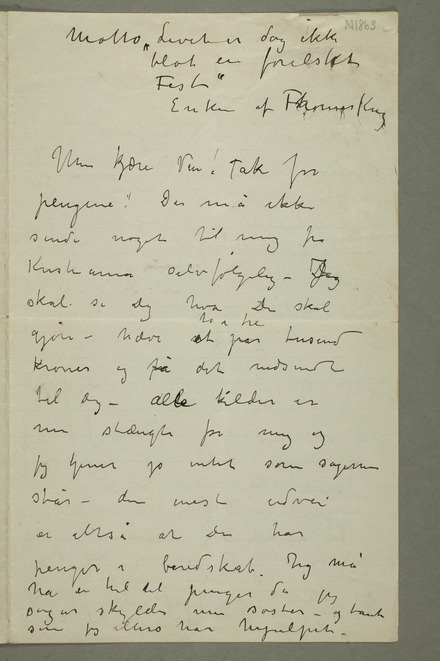 N1863
Motto „Livet er dog ikke
blot en forelsket
Fest"
Enken af Thomas Krag
Min kjære Ven! Tak for
pengene! Du må ikke
sende noget til mig fra
Kristiania selvfølgelig – Jeg
skal si dig hva Du skal
to a tre
gjøre – hæve et par tusend
kroner og få det nedsendt
til dig – alle kilder er
nu stængte for mig og
jeg tjener jo intet som sagerne
står – den eneste udvei
er altså at Du har
penger i beredskab. Jeg må
ha en hel del penger da jeg
skylder min søster – og tante
som jeg ellers har hjulpet –